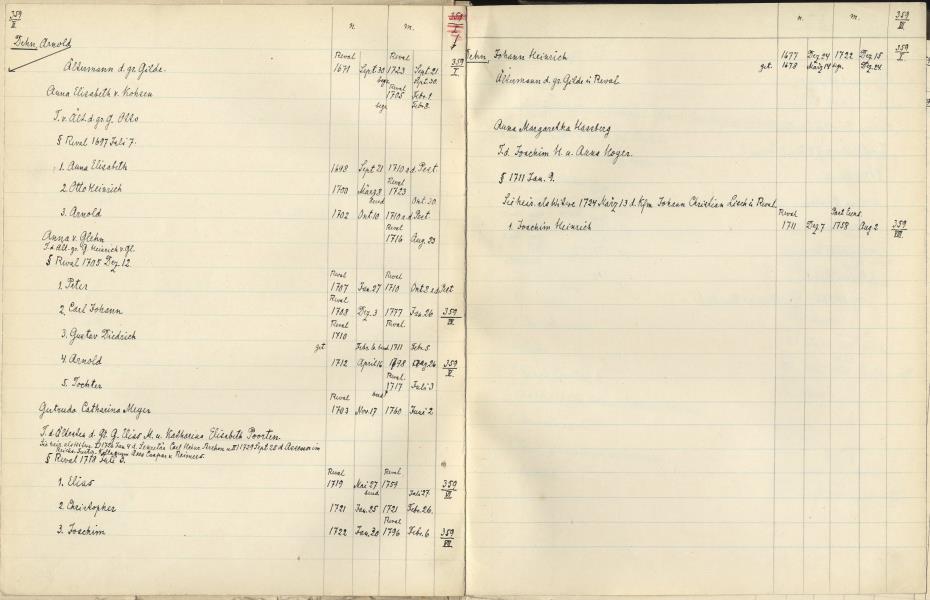 359
II
n. m.
359
I
Dehn, Arnold
Reval Reval
Ältermann d. gr. Gilde. 1671 Sept. 30 1723 Sept. 21.
begr. Sept. 30.
359
I
Reval
Anna Elisabeth v. Kohsen 1705 Febr. 1.
begr. Febr. 8.
T. v. Ält. d. gr. G. Otto
§ Reval 1697 Juli 7.
1. Anna Elisabeth 1698 Sept. 21 1710 a. d. Pest
Reval
2. Otto Heinrich 1700 März 8 1723
Okt. 30.
3. Arnold 1702 Okt. 10 1710 a. d. Pest.
Reval
Anna v. Glehn 1716 Aug. 23
T. d. Ält. gr. G. Heinrich v. Gl.
§ Reval 1705 Dez. 12.
Reval Reval
1. Peter 1707 Jan. 27 1710 Okt. 2. a. d. Pest
Reval
2. Carl Johann 1708 Dez. 3 1777 Jan. 26
359
IV
Reval Reval
3. Gustav Diedrich 1710
get. Febr. 6. 1711 Febr. 5.
4. Arnold 1712 April 16
359
V
Reval
5. Tochter 1717 Juli 3
Reval
Gertrude Catharina Meyer 1703 Nov. 17 1760 Juni 2
T. d. Ältesten d. Gr. G. Elias M. u. Katharina Elisabeth Poorten.
§ Reval 1718 Juli 3.
Reval Reval
1. Elias 1719 Mai 27 1757
Juli 27.
359
VI
2. Christopher 1721 Jan. 25 1721 Febr. 26.
Reval
3. Joachim 1722 Jan. 30 1796 Febr. 6
359
VII
n. m.
359
III
Dehn, Johann Heinrich 1677 Dez. 24 1722 Dez. 15
get. 1678 März 14 Dez. 24.
359
I
Ältermann d. gr. Gilde u. Reval
Anna Margaretha Hassberg
T. d. Joachim H. u. Anna Hoyer.
§ 1711 Jan. 9.
Sie heir. als Witwe 1724 März 13 d. Kfm. Johann Christian Lisch u. Reval.
Reval
1. Joachim Heinrich 1711 Dez. 7 1758 Aug. 2
359
VIII